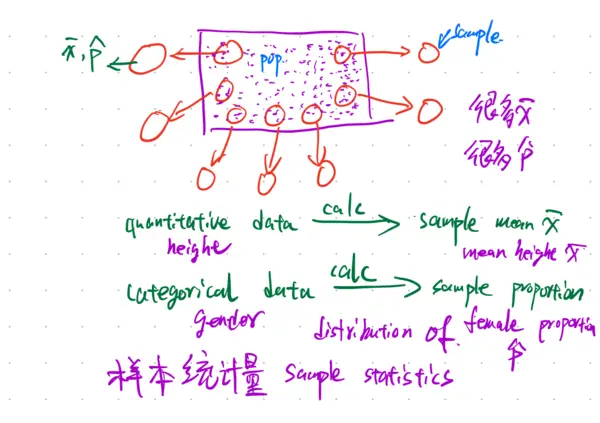 x̄, p̂
pop.
sample
很多x̄
很多p̂
quantitative data calc sample mean x̄
heighe mean heighe x̄
categorical data calc sample proportion
gender distribution of female proportion
p̂
样本统计量 sample statistics